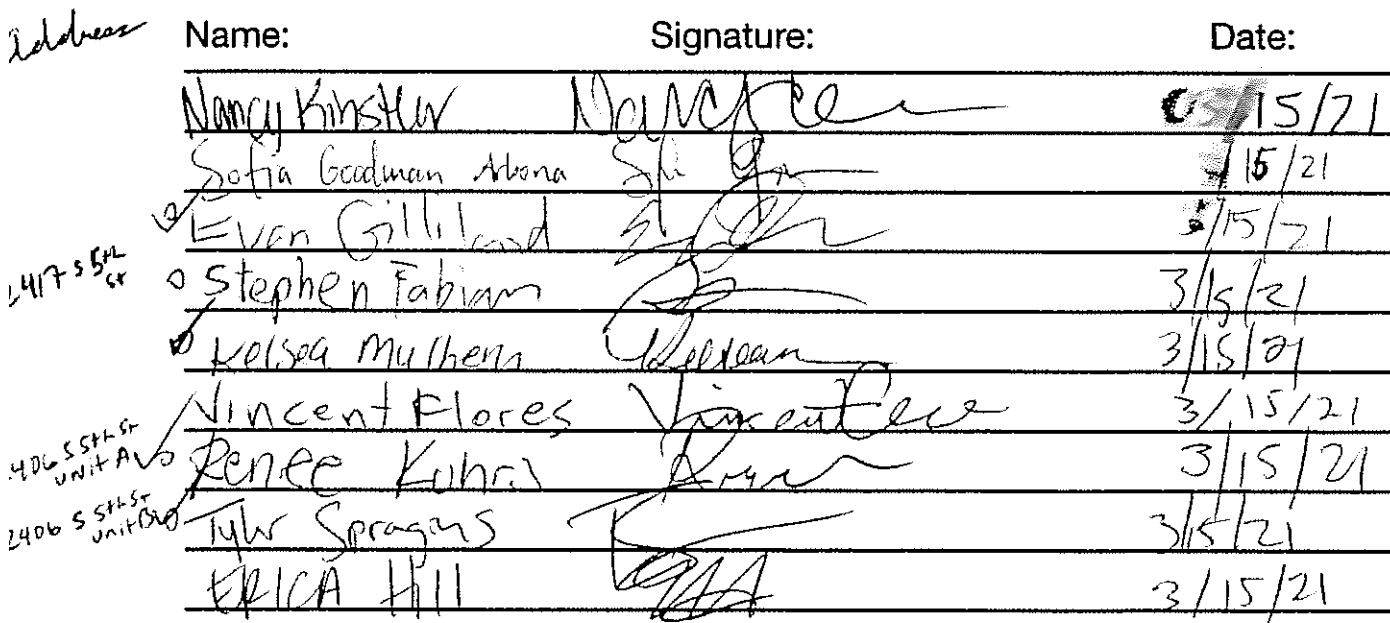 Address Name: Signature: Date:
Nancy Kinstler Nancy 15/21
Sofia Goodman 15/21
Evan Gilliland 3/15/21
2417 S 5th St Stephen Fabian 3/15/21
Kelsea Mulhern Kelsea 3/15/21
Vincent Flores Vincent 3/15/21
2406 S 5th St Unit A Renee Kuhns 3/15/21
2406 S 5th St Unit B Tyler Spragins 3/15/21
ERICA Hill 3/15/21